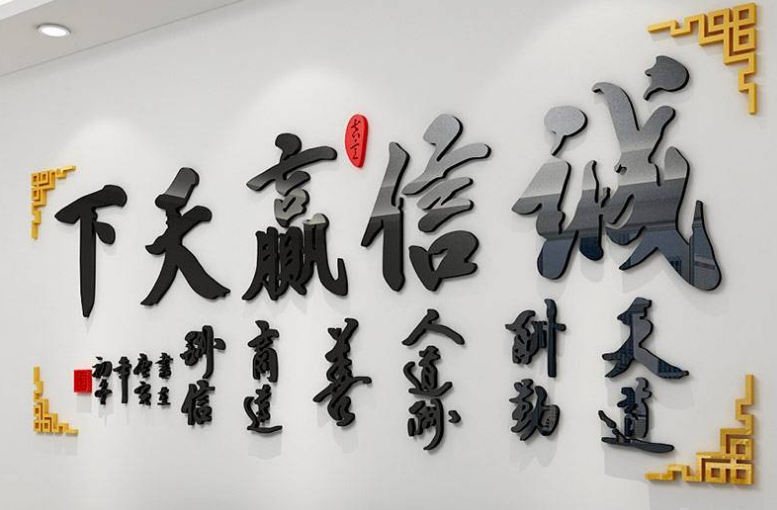 诚信赢天下
天道酬勤
人道酬善
商道酬信
庚寅
年